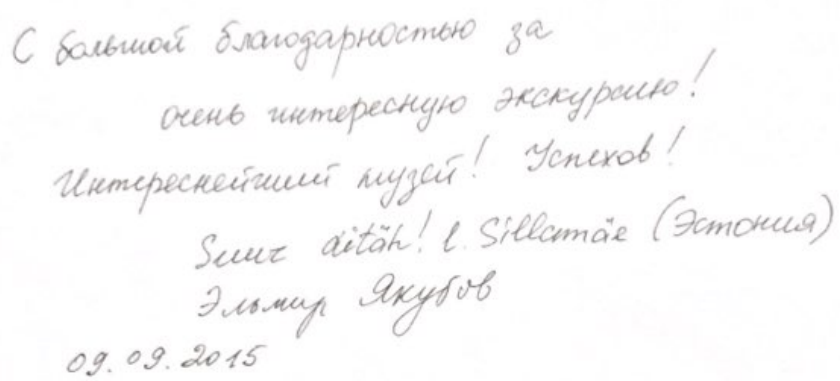 С большой благодарностью за
очень интересную экскурсию!
Интереснейший музей! Успехов!
Suur aitäh! г. Sillamäe (Эстония)
Эльмир Якубов
09.09.2015